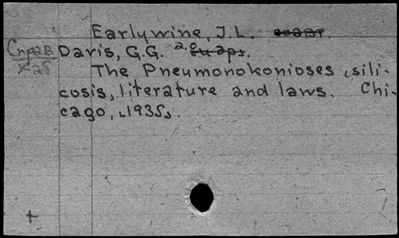 Earlywine, J.L.
Davis, G.G.
The Pneumonokonioses, sili-
cosis, literature and laws. Chi-
cago, 1935.